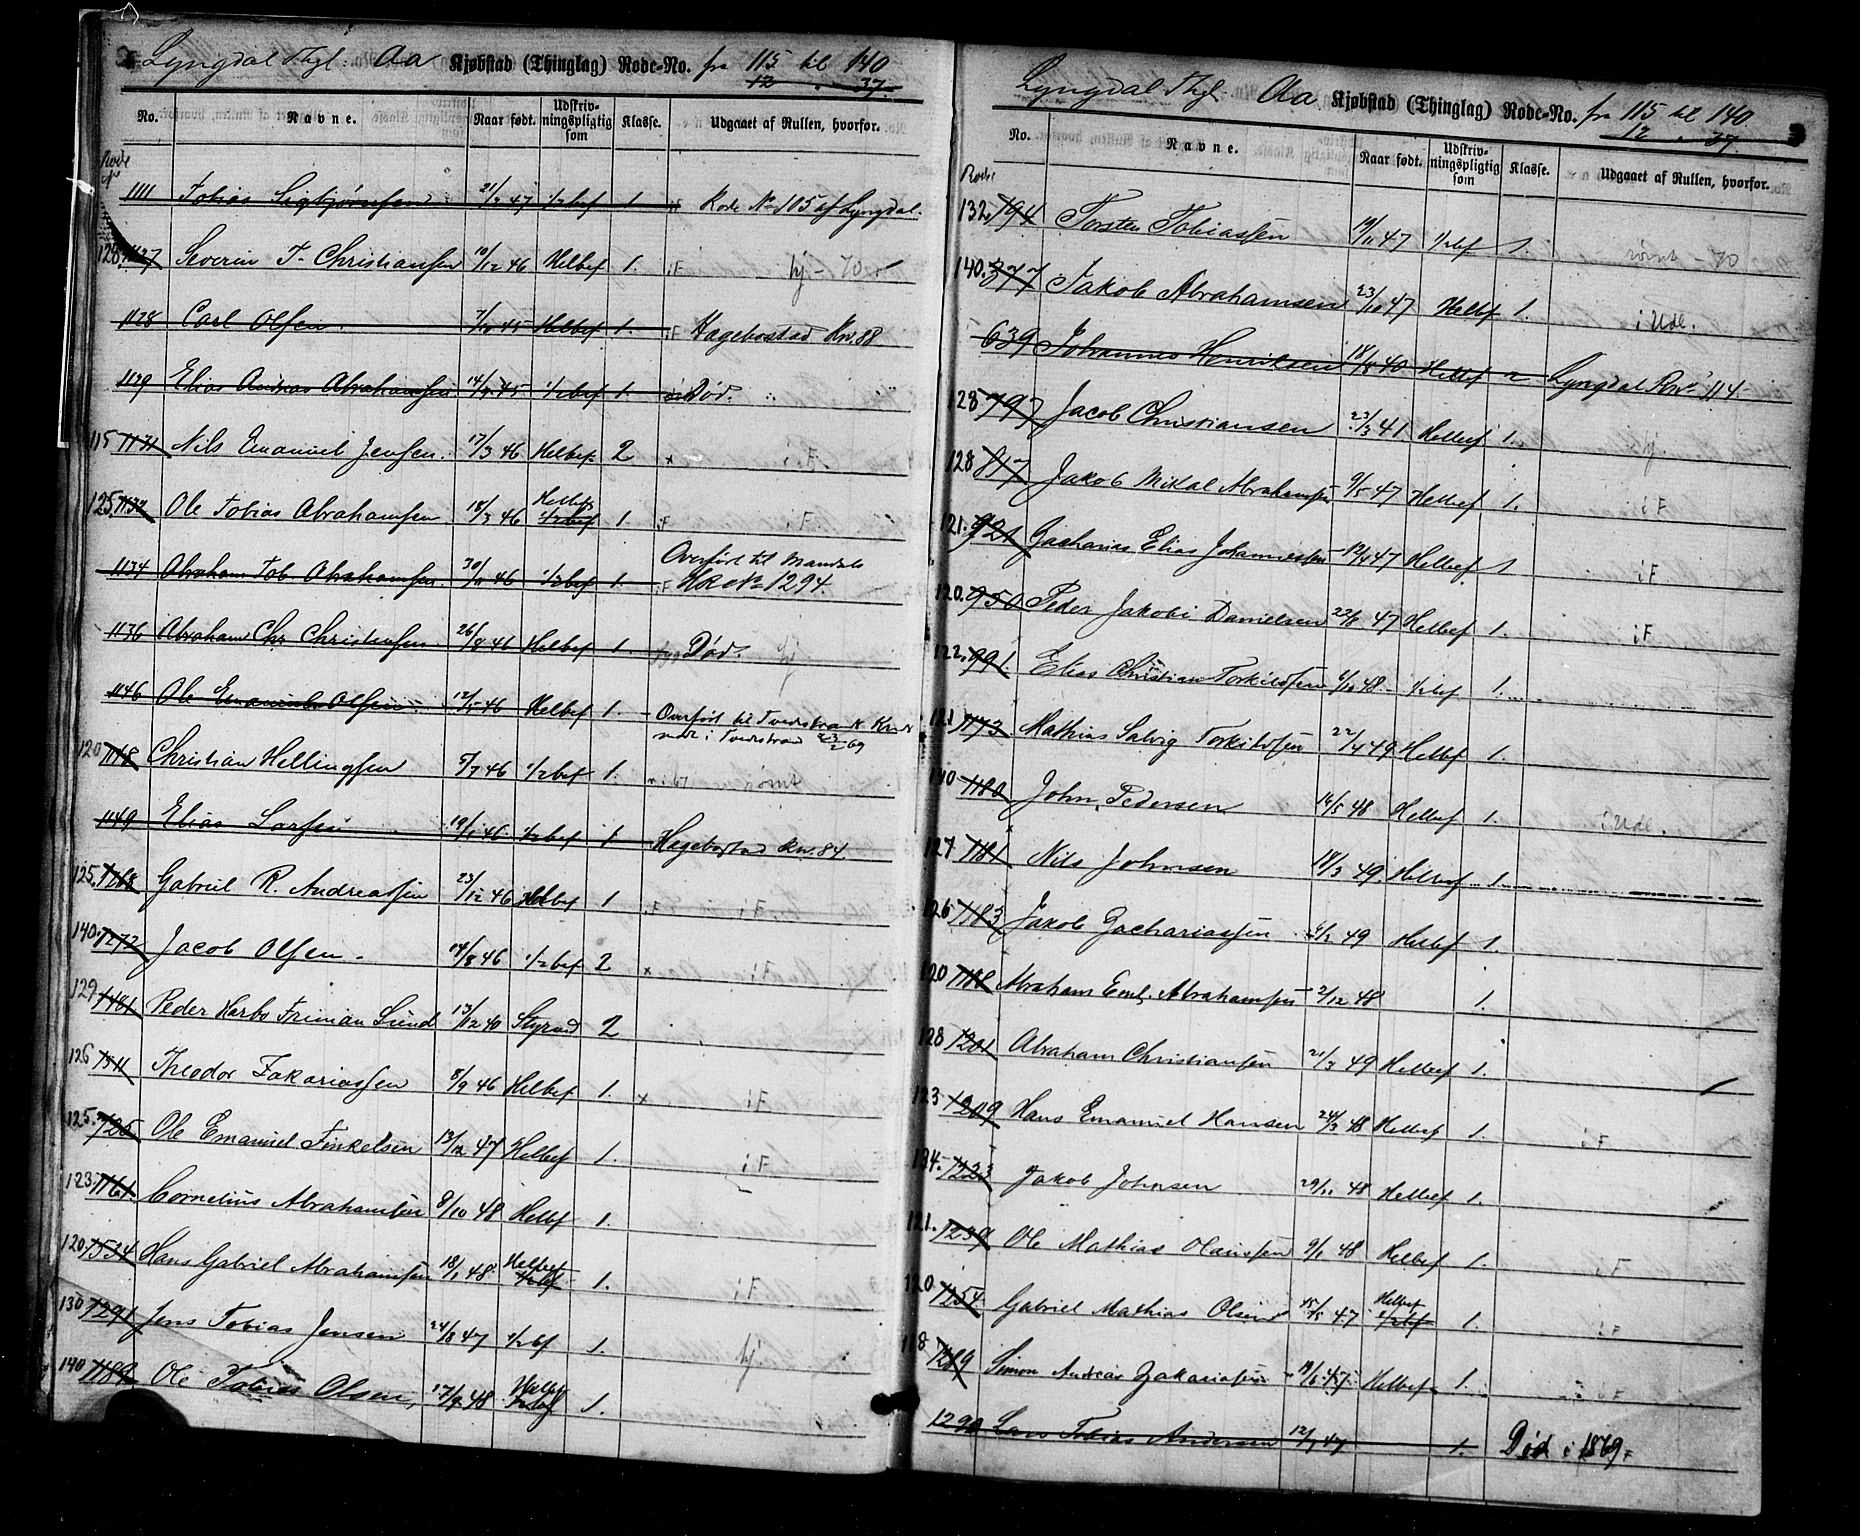 2 Lyngdal Thgl. Aa Kjøbstad (Thinglag) Rode-No. fra 115 til 140
12 37.
No. Navne. Naar født. Udskriv-ningspligtig som Klasse. Udgaaet af Rullen, hvorfor.
Rode
1111 Tobias Sigbjørnsen 21/2 47 1/2bef 1. iF Rode No 105 af Lyngdal.
128 1127 Severin T. Christiansen 10/12 46 Helbef 1. iF hj - 70
1128 Carl Olsen. 45 Helbef 1. iF Hægebostad Rn. 88
1129 Elias Andreas Abrahamsen 45 1/2bef 1. Død.
115 1131 Nils Emanuel Jensen. 17/3 46 Helbef. 2 x i F.
125. 1132 Ole Tobias Abrahamsen 18/3 46 Helbef 1/2bef 1. iF i F.
Overført til Mandals
1134 Abraham Tob. Abrahamsen 30/11 46 1/2bef 1. iF HR No 1294.
1136 Abraham Chr. Christensen. 26/8 46 Helbef 1. Død. hj
1146 Ole Emanuel Olsen 12/5 46 Helbef 1. Overført til Tvedestrand
i Tvedestrand 23/2 69
120 1148 Christian Hellingsen 5/7 46 1/2bef 1. rømt
1149 Elias Larsen 19/1 46 1/2bef 1 Hægebostad Rn. 84.
125. 1168 Gabriel R. Andreassen 23/12 46 Helbef 1 iF i F
140. 1272 Jacob Olsen. 14/8 46 1/2bef 2 x i F
129 1461 Peder Harbo Friman Lund 13/12 40 Styrmd 2
126 1511 Theodor Zakariassen 8/9 46 Helbef 1. x i F
125. 725 Ole Emanuel Finkelsen 13/12 47 Helbef 1. i F
123. 1161 Cornelius Abrahamsen 8/10 48 Helbf 1.
120. 1534 Hans Gabriel Abrahamsen 18/1 48 Helbef 1/2bf 1. i F
130 1291 Jens Tobias Jensen 24/8 47 1/2bf 1. hj
140 1189 Ole Tobias Olsen, 17/9 48 Helbef 1/2bf 1.
Lyngdal Thgl. Aa Kjøbstad (Thinglag) Rode-No. fra 115 til 140 3
12 37.
No. Navne. Naar født. Udskriv-ningspligtig som Klasse. Udgaaet af Rullen, hvorfor.
Rode
132. 194 Torsten Tobiassen 19/11 47 1/2bef 1. rømt - 70
140. 377 Jakob Abrahamsen 23/10 47 Helbf 1. i Udl.
639 Johannes Henriksen 18/8 40 Helbef 2 Lyngdal Rn. 114.
128 797 Jacob Christiansen 23/3 41 Helbef 1. hj
128 817 Jakob Mikal Abrahamsen 9/5 47 Helbef 1. i F
121. 921 Zacharias Elias Johannessen 47 Helbef 1 i F
120. 950 Peder Jakobi Danielsen 47 Helbef 1. i F
122. 991. Elias Christian Torkildsen 6/10 48 1/2bef 1.
121 1173 Mathias Salvig Torkildsen 22/4 49 Helbef 1.
140 1180 John Pedersen 14/5 48 Helbef 1. i Udl.
127 1181 Nils Johnsen 18/3 49. Helbef 1.
126 1183 Jakob Zachariassen 49 Helbef 1.
120 1188 Abraham Eml. Abrahamsen 2/12 48 1.
128 1201 Abraham Christiansen 21/3 49 Helbef 1.
123 1209 Hans Emanuel Hansen 24/3 48 Helbef 1. i F
134. 1223 Jakob Johnsen 29/11 48 Helbef 1.
121. 1239 Ole Mathias Olaussen 9/1 48 Helbef 1. i F
120 1254 Gabriel Mathias Olsen 15/5 47 Helbef 1/2bef 1. i F
118 1289 Simon Andreas Zakariassen 19/6 47 Helbef 1. i F
1290 Lars Tobias Andersen 12/1 47 1. Død i 1869.